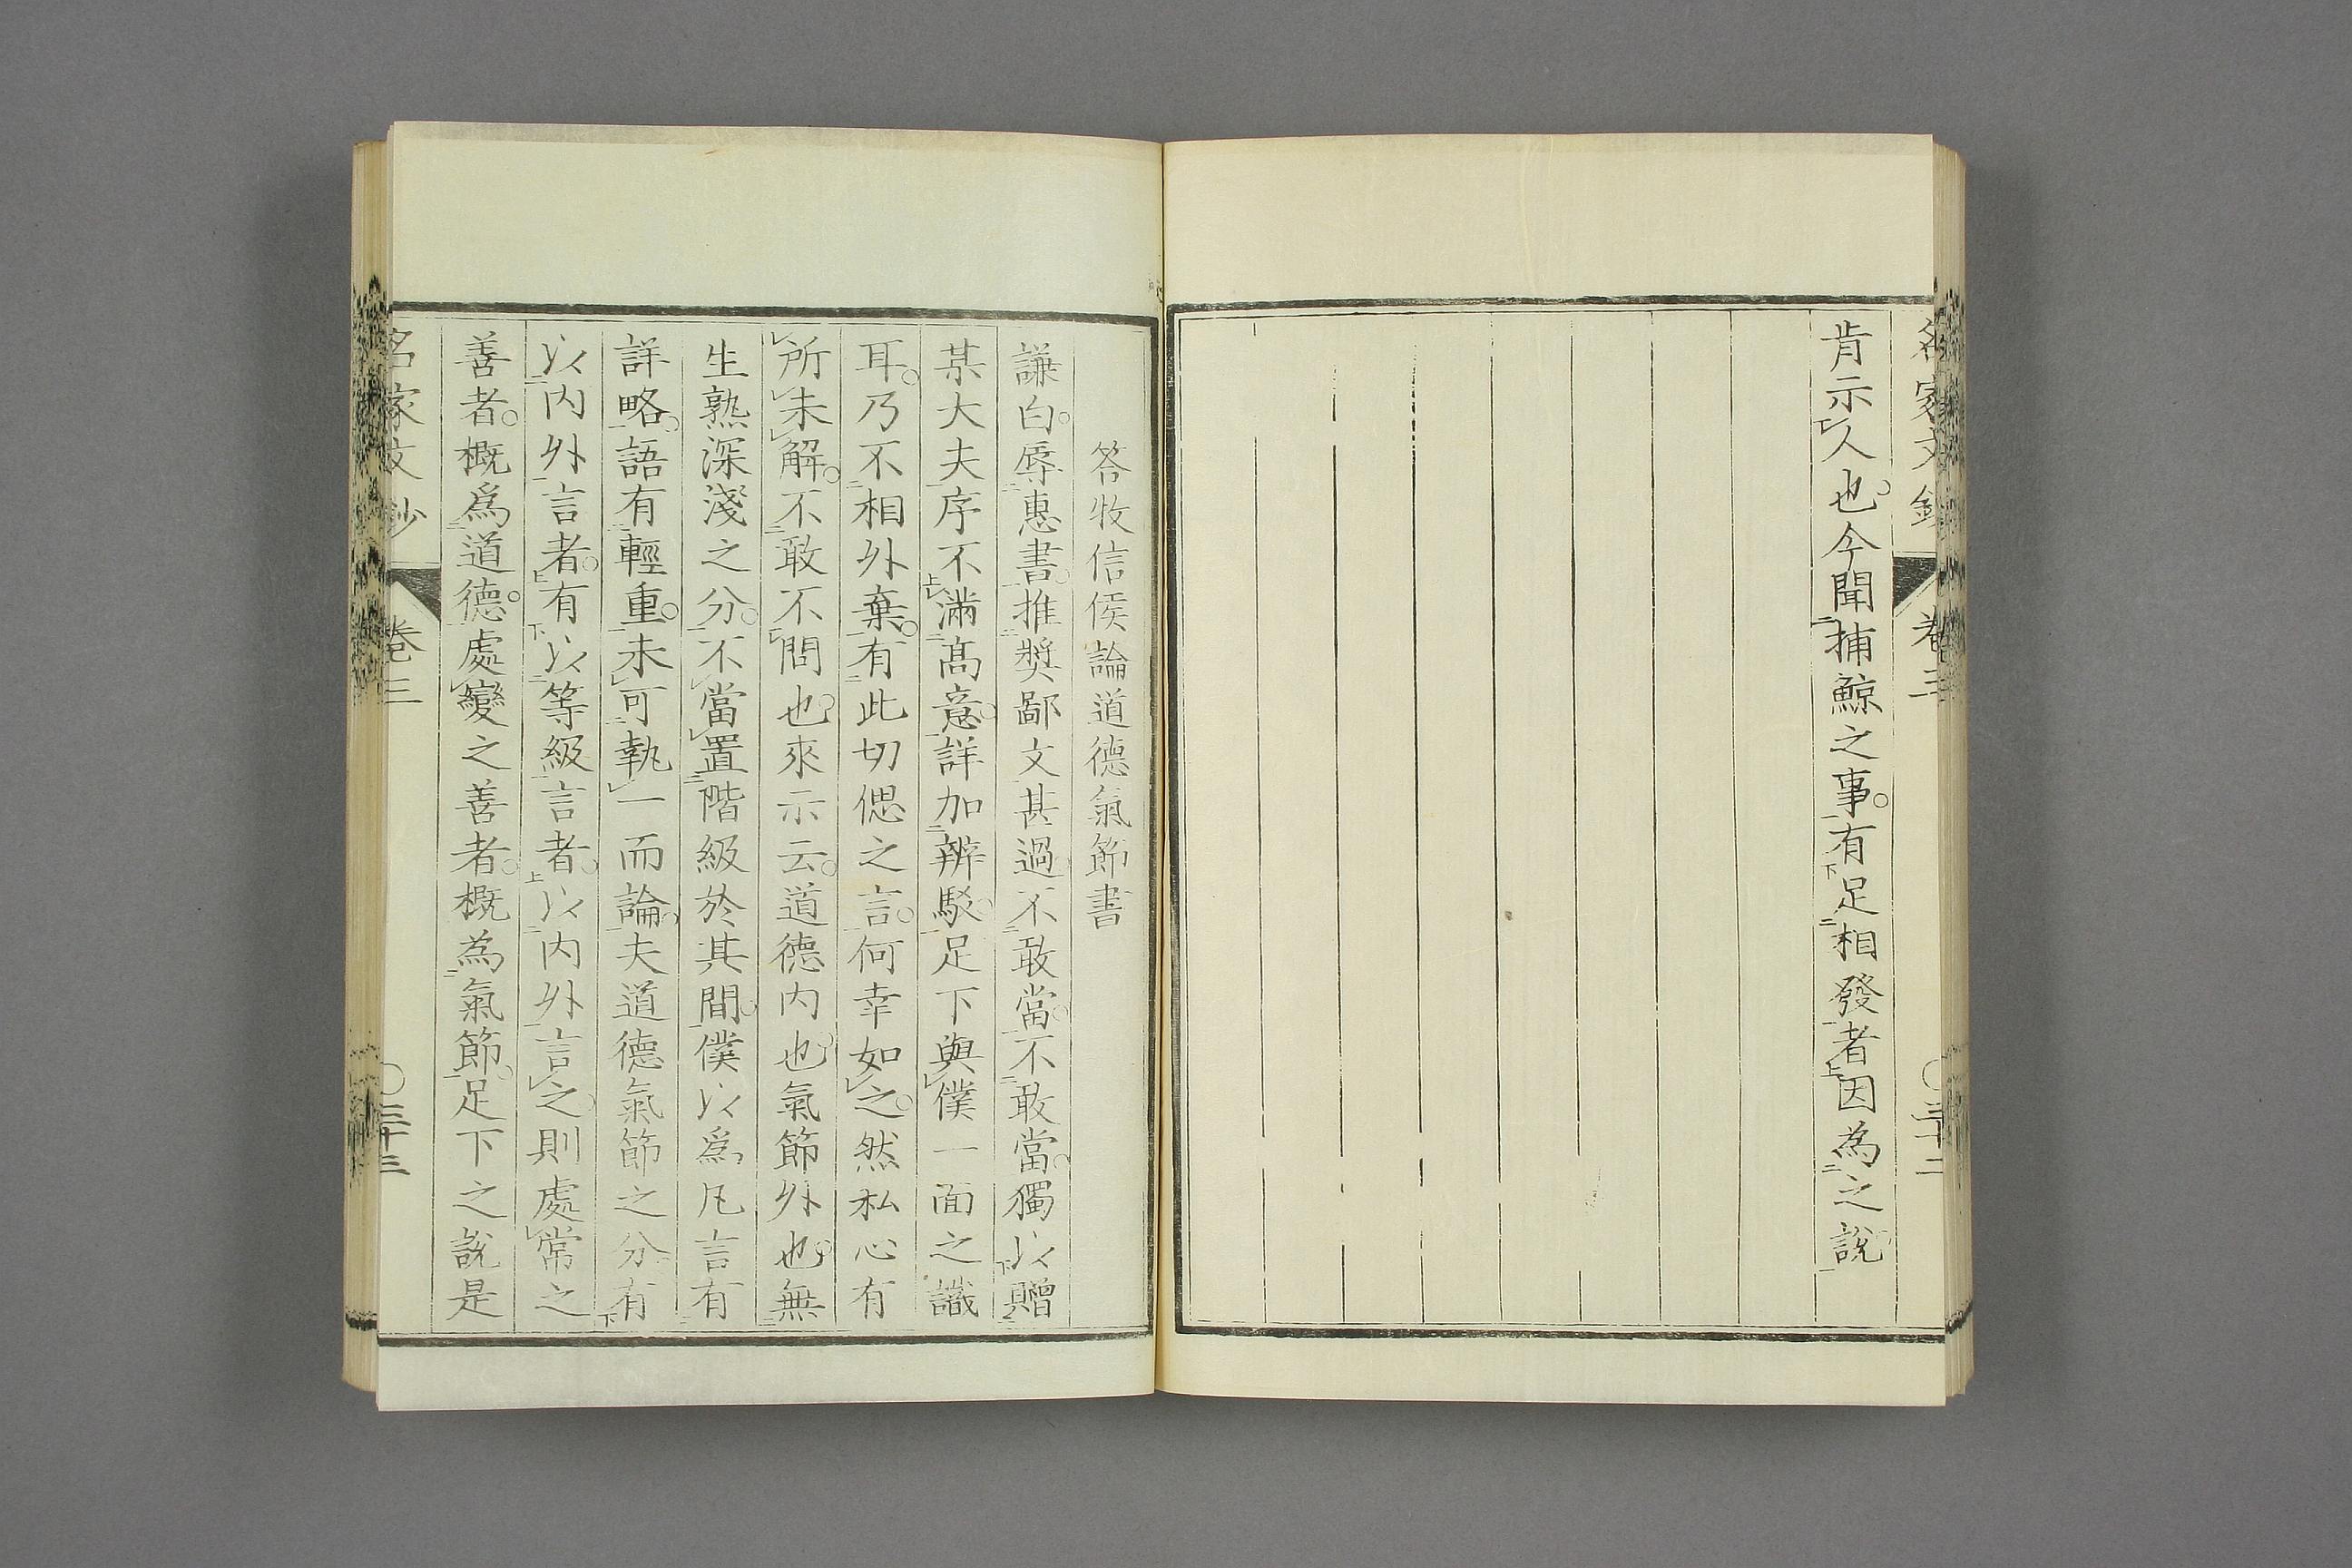 肯示人也今聞捕鯨之事有足相發者因為之說
答牧信侯論道德氣節書
謙白辱惠書推奬鄙文甚過不敢當不敢當獨以贈
某大夫序不滿高意詳加辨駁足下與僕一面之識
耳乃不相外棄有此切偲之言何幸如之然私心有
所未解不敢不問也來示云道德内也氣節外也無
生熟深淺之分不當置階級於其間僕以爲凡言有
詳略語有輕重未可執一而論夫道德氣節之分有
以内外言者有以等級言者以内外言之則處常之
善者概爲道德處變之善者概為氣節足下之說是
名家文鈔 卷三 三十三